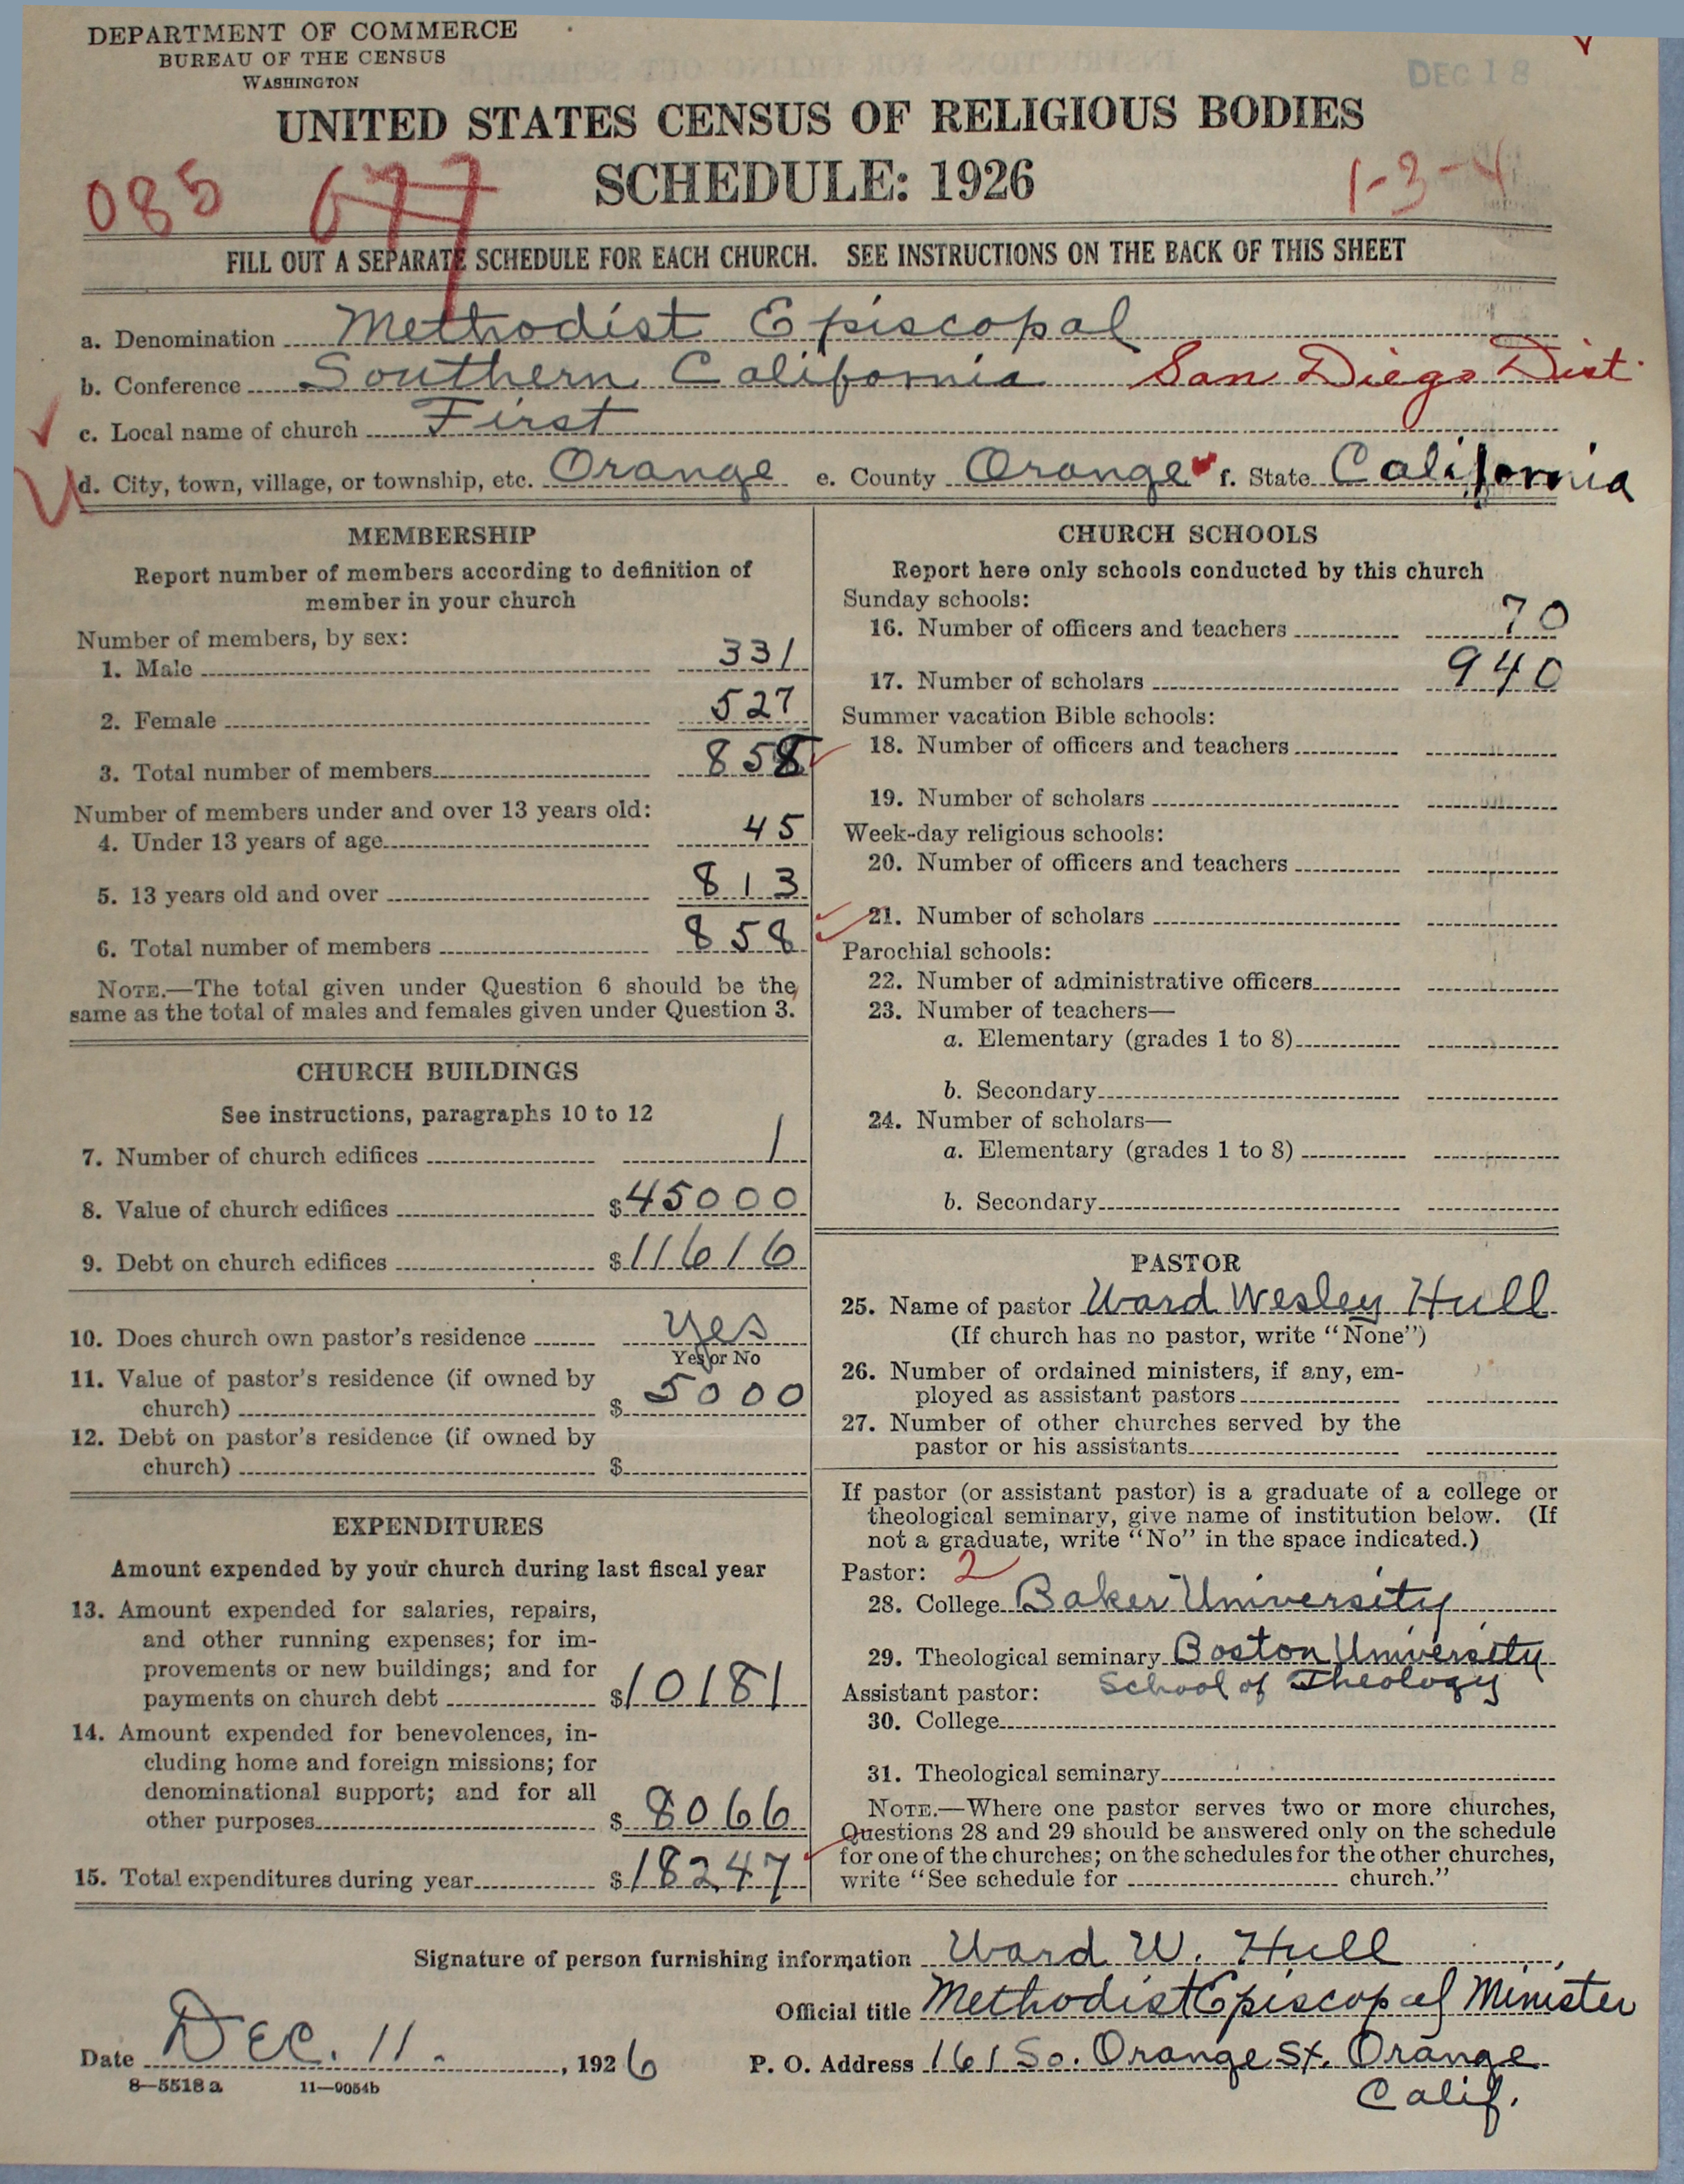 DEPARTMENT OF COMMERCE
BUREAU OF THE CENSUS
WASHINGTON
DEC 18
UNITED STATES CENSUS OF RELIGIOUS BODIES
SCHEDULE: 1926
085 677 1-3-4
FILL OUT A SEPARATE SCHEDULE FOR EACH CHURCH. SEE INSTRUCTIONS ON THE BACK OF THIS SHEET
a. Denomination Methodist Episcopal
b. Conference Southern California San Diego Dist.
c. Local name of church First
d. City, town, village, or township, etc. Orange e. County Orange f. State California
MEMBERSHIP
Report number of members according to definition of
member in your church
Number of members, by sex:
1. Male 331
2. Female 527
3. Total number of members 858
Number of members under and over 13 years old:
4. Under 13 years of age 45
5. 13 years old and over 813
6. Total number of members 858
NOTE.—The total given under Question 6 should be the
same as the total of males and females given under Question 3.
CHURCH BUILDINGS
See instructions, paragraphs 10 to 12
7. Number of church edifices 1
8. Value of church edifices $45000
9. Debt on church edifices $11616
10. Does church own pastor's residence yes
Yes or No
11. Value of pastor's residence (if owned by
church) $5000
12. Debt on pastor's residence (if owned by
church) $
EXPENDITURES
Amount expended by your church during last fiscal year
13. Amount expended for salaries, repairs,
and other running expenses; for im-
provements or new buildings; and for
payments on church debt $10181
14. Amount expended for benevolences, in-
cluding home and foreign missions; for
denominational support; and for all
other purposes $8066
15. Total expenditures during year $18247
CHURCH SCHOOLS
Report here only schools conducted by this church
Sunday schools:
16. Number of officers and teachers 70
17. Number of scholars 940
Summer vacation Bible schools:
18. Number of officers and teachers
19. Number of scholars
Week-day religious schools:
20. Number of officers and teachers
21. Number of scholars
Parochial schools:
22. Number of administrative officers
23. Number of teachers—
a. Elementary (grades 1 to 8)
b. Secondary
24. Number of scholars—
a. Elementary (grades 1 to 8)
b. Secondary
PASTOR
25. Name of pastor Ward Wesley Hull
(If church has no pastor, write "None")
26. Number of ordained ministers, if any, em-
ployed as assistant pastors
27. Number of other churches served by the
pastor or his assistants
If pastor (or assistant pastor) is a graduate of a college or
theological seminary, give name of institution below. (If
not a graduate, write "No" in the space indicated.)
Pastor: 2
28. College Baker University
29. Theological seminary Boston University
Assistant pastor: School of Theology
30. College
31. Theological seminary
NOTE.—Where one pastor serves two or more churches,
Questions 28 and 29 should be answered only on the schedule
for one of the churches; on the schedules for the other churches,
write "See schedule for church."
Signature of person furnishing information Ward W. Hull
Official title Methodist Episcopal Minister
Date Dec. 11. , 1926 P. O. Address 161 So. Orange St. Orange
8—5518 a 11—9054b Calif.